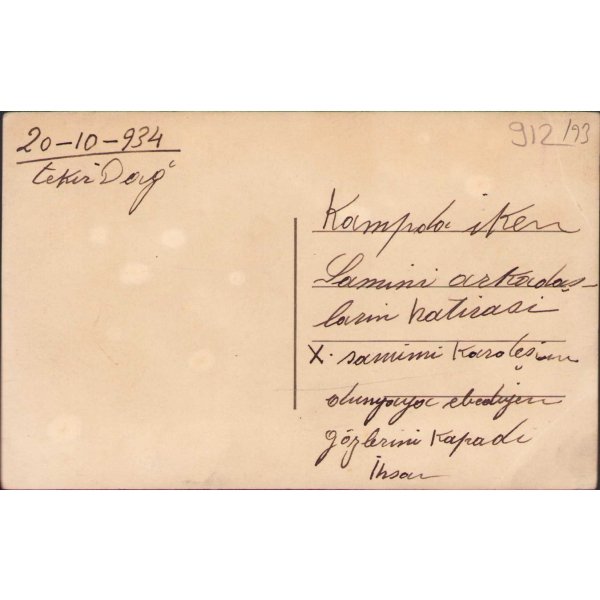 20-10-934
tekir Dağ
912/93
Kampda iken
Samimi arkadaş-
ların hatirasi
X. samimi kardeşim
dunyaya ebediyen
gözlerini kapadi
İhsan